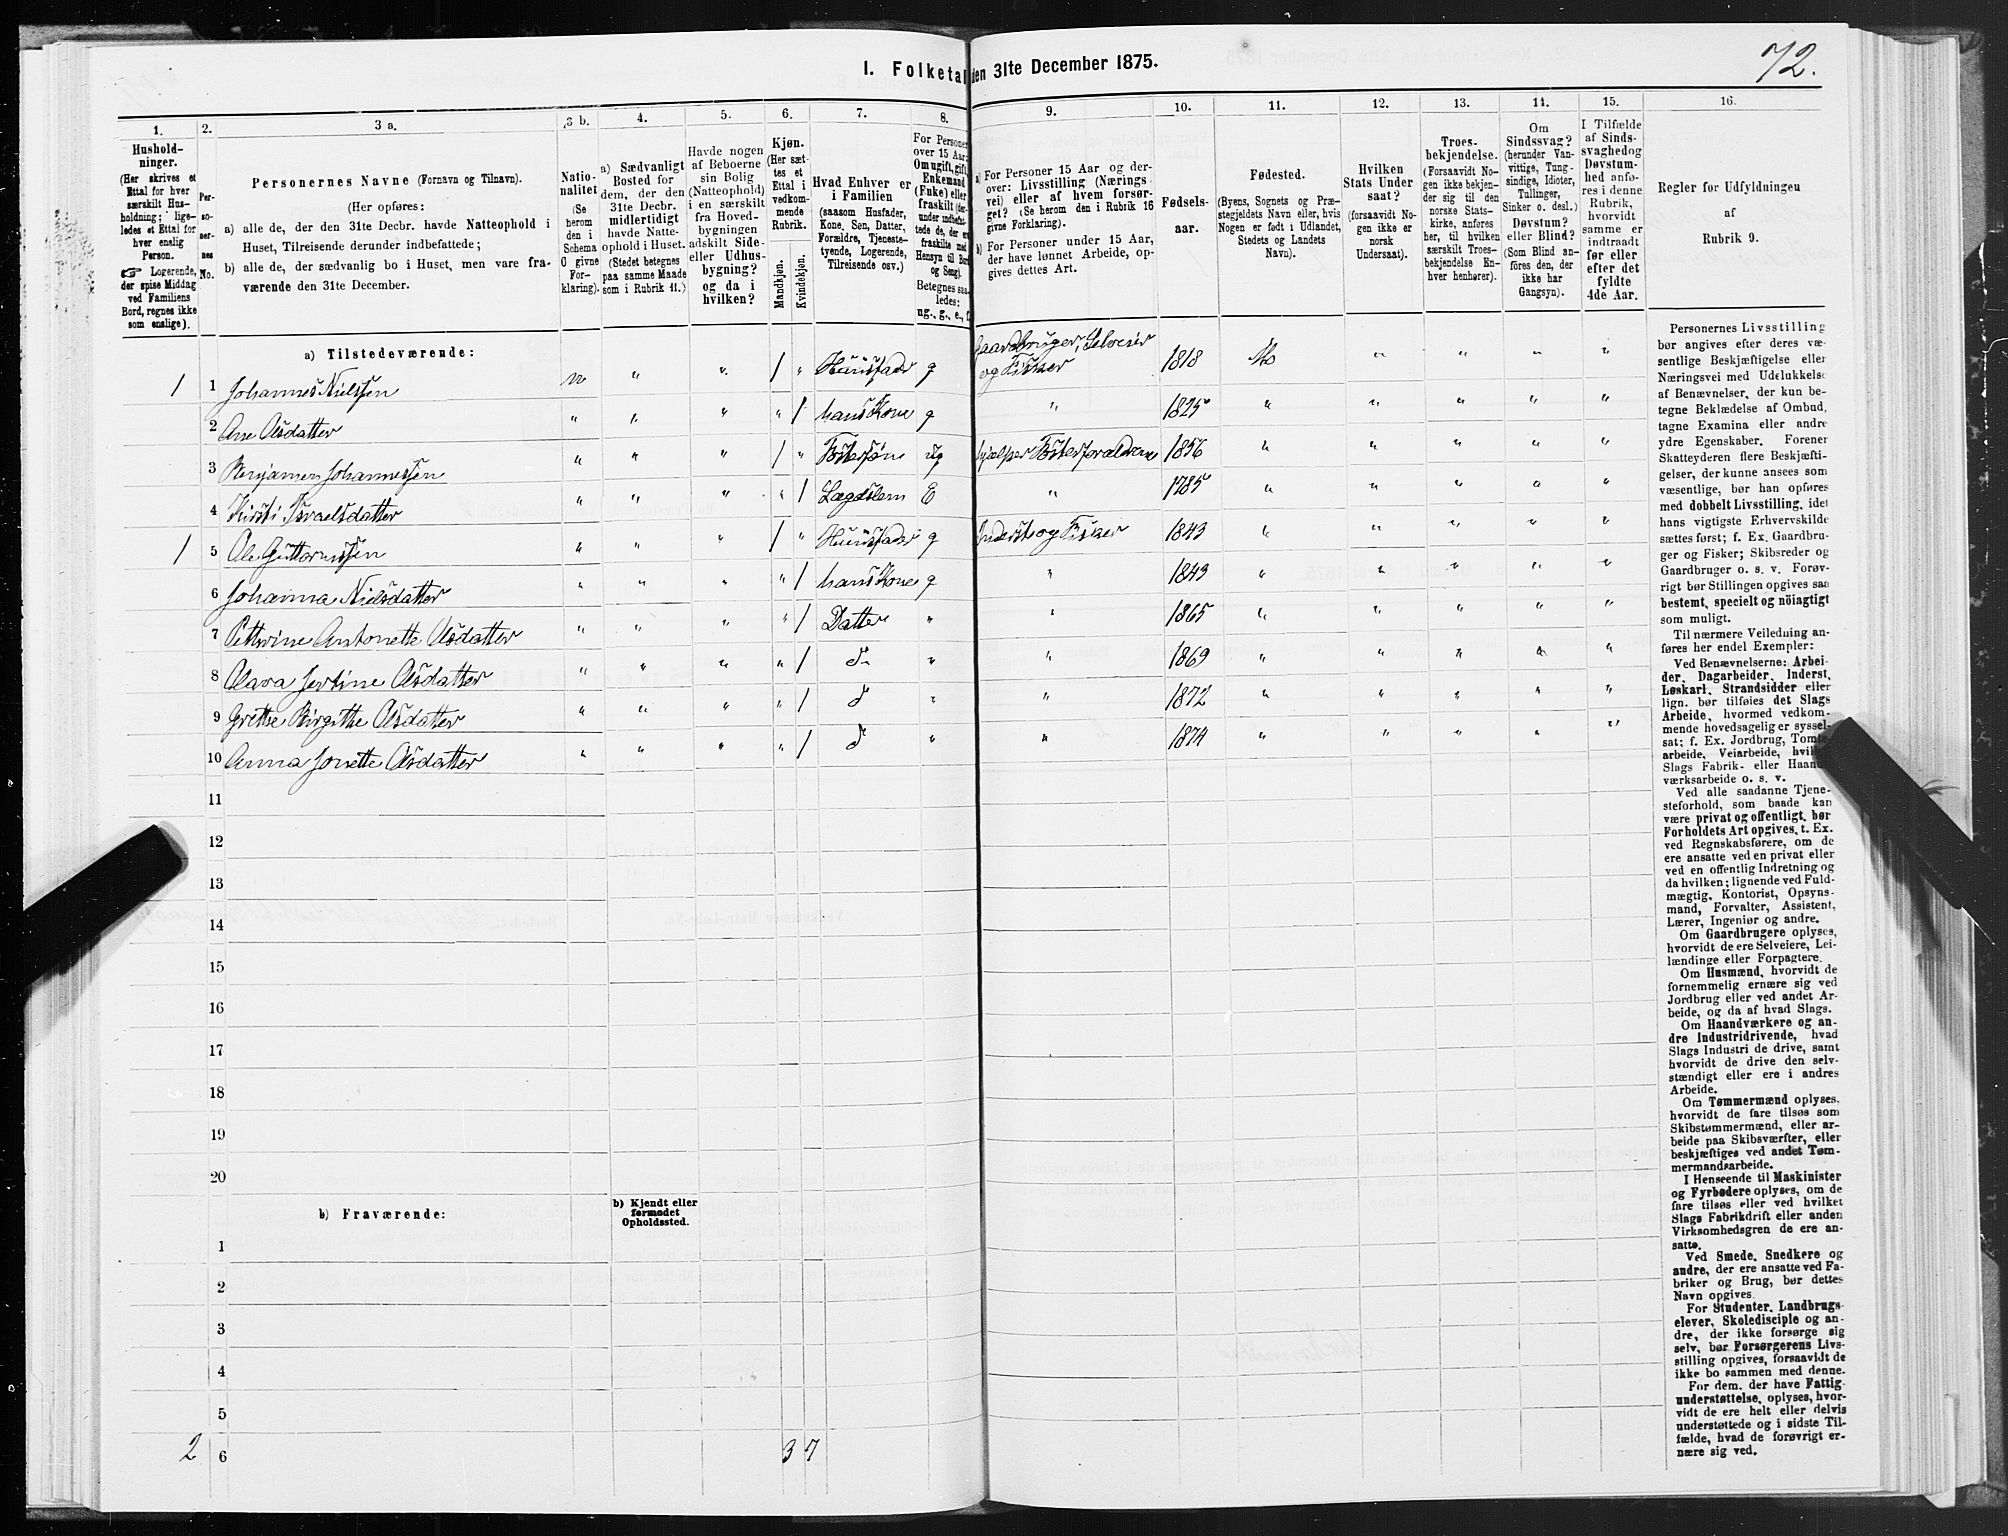 72.
I. Folketal den 31te December 1875.
1. 2. 3 a. 3 b. 4. 5. 6. 7. 8. 9. 10. 11. 12. 13. 14. 15. 16.
Hushold-
ninger.
(Her skrives et
Ettal for hver
særskilt Hus-
holdning; lige-
ledes et Ettal for
hver enslig
Person.
☞ Logerende,
der spise Middag
ved Familiens
Bord, regnes ikke
som enslige).
Per-
so-
ner-
nes
No.
Personernes Navne (Fornavn og Tilnavn).
(Her opføres:
a) alle de, der den 31te Decbr. havde Natteophold i
Huset, Tilreisende derunder indbefattede;
b) alle de, der sædvanlig bo i Huset, men vare fra-
værende den 31te December.
Natio-
nalitet
(Se
herom
den i
Schema
O givne
For-
klaring).
a) Sædvanligt
Bosted for
dem, der den
31te Decbr.
midlertidigt
havde Natte-
ophold i Huset.
(Stedet betegnes
paa samme Maade
som i Rubrik 11.)
Havde nogen
af Beboerne
sin Bolig
(Natteophold)
i en særskilt
fra Hoved-
bygningen
adskilt Side-
eller Udhus-
bygning?
og da i
hvilken?
Kjøn.
(Her sæt-
tes et
Ettal i
vedkom-
mende
Rubrik.
Mandkjøn.
Kvindekjøn.
Hvad Enhver er
i Familien
(saasom Husfader,
Kone, Søn, Datter,
Forældre, Tjeneste-
tyende, Logerende,
Tilreisende osv.)
For Personer
over 15 Aar:
Om ugift, gift,
Enkemand
(Enke) eller
fraskilt (der-
under indbefat-
tede de, der ere
fraskilte med
Hensyn til Bord
og Seng).
Betegnes saa-
ledes:
ug., g., e., f.
a) For Personer 15 Aar og der-
over: Livsstilling (Nærings
vei) eller af hvem forsør-
get? (Se herom den i Rubrik 16
givne Forklaring).
b) For Personer under 15 Aar,
der have lønnet Arbeide, op-
gives dettes Art.
Fødsels-
aar.
Fødested.
(Byens, Sognets og Præ-
stegjeldets Navn eller, hvis
Nogen er født i Udlandet,
Stedets og Landets
Navn).
Hvilken
Stats Under
saat?
(forsaavidt No-
gen ikke er
norsk
Undersaat).
Troes-
bekjendelse.
(Forsaavidt No-
gen ikke bekjen-
der sig til den
norske Stats-
kirke, anføres
her, til hvilken
særskilt Troes-
bekjendelse En-
hver henhører).
Om
Sindssvag?
(herunder Van-
vittige, Tung-
sindige, Idioter,
Tullinger,
Sinker o. desl.)
Døvstum?
eller Blind?
(Som Blind an-
føres den, der
ikke har
Gangsyn).
I Tilfælde
af Sinds-
svaghed og
Døvstum-
hed anfø-
res i denne
Rubrik,
hvorvidt
samme er
indtraadt
før eller
efter det
fyldte
4de Aar.
Regler for Udfyldningen
af
Rubrik 9.
a) Tilstedeværende:
1 1 Johannes Nielsen n " " 1 " Huusfader g Gaardbruger, Selveier og Fisker 1818 Mo " " " "
2 Ane Olsdatter " " " " 1 hans Kone g " 1825 " " " " "
3 Benjamen Johannessen " " " 1 " Fostersøn ug hjælper Fosterforældrene 1856 " " " " "
4 Kirsti Israelsdatter " " " " 1 Lægdslem E " 1785 " " " " "
1 5 Ole Guttormsen " " " 1 " Huusfader g Inderst og Fisker 1843 " " " " "
6 Johanna Nielsdatter " " " " 1 hans Kone g " 1843 " " " " "
7 Petterine Antonette Olsdatter " " " " 1 Datter " " 1865 " " " " "
8 Olava Jertine Olsdatter " " " " 1 d. " " 1869 " " " " "
9 Grethe Birgitte Olsdatter " " " " 1 d " " 1872 " " " " "
10 Anna Jonette Olsdatter " " " " 1 d " " 1874 " " " " "
11
12
13
14
15
16
17
18
19
20
b) Fraværende:
b) Kjendt eller
formodet
Opholdssted.
1
2
3
4
5
2 6 3 7
Personernes Livsstilling
bør angives efter deres væ-
sentlige Beskjæftigelse eller
Næringsvei med Udelukkelse
af Benævnelser, der kun be-
tegne Beklædelse af Ombud,
tagne Examina eller andre
ydre Egenskaber. Forener
Skatteyderen flere Beskjæfti-
gelser, der kunne ansees som
væsentlige, bør han opføres
med dobbelt Livsstilling, idet
hans vigtigste Erhvervskilde
sættes først; f. Ex. Gaardbru-
ger og Fisker; Skibsreder og
Gaardbruger o. s. v. Forøv-
rigt bør Stillingen opgives saa
bestemt, specielt og nöiagtigt
som muligt.
Til nærmere Veiledning an-
føres her endel Exempler:
Ved Benævnelserne: Arbei-
der, Dagarbeider, Inderst,
Løskarl, Strandsidder eller
lign. bør tilføies det Slags
Arbeide, hvormed vedkom-
mende hovedsagelig er syssel-
sat; f. Ex. Jordbrug, Tomte-
arbeide, Veiarbeide, hvilket
Slags Fabrik- eller Haand-
værksarbeide o. s. v.
Ved alle saadanne Tjene-
steforhold, som baade kan
være privat og offentligt, bør
Forholdets Art opgives, t. Ex.
ved Regnskabsførere, om de
ere ansatte ved en privat eller
ved en offentlig Indretning og
da hvilken; lignende ved Fuld-
mægtig, Kontorist, Opsyns-
mand, Forvalter, Assistent,
Lærer, Ingeniør og andre.
Om Gaardbrugere oplyses,
hvorvidt de ere Selveiere, Lei-
lændinge eller Forpagtere.
Om Husmænd, hvorvidt de
fornemmelig ernære sig ved
Jordbrug eller ved andet Ar-
beide, og da af hvad Slags.
Om Haandværkere og an-
dre Industridrivende, hvad
Slags Industri de drive, samt
hvorvidt de drive den selv-
stændigt eller ere i andres
Arbeide.
Om Tømmermænd oplyses,
hvorvidt de fare tilsøs som
Skibstømmermænd, eller ar-
beide paa Skibsværfter, eller
beskjæftiges ved andet Tøm-
mermandsarbeide.
I Henseende til Maskinister
og Fyrbødere oplyses, om de
fare tilsøs eller ved hvilket
Slags Fabrikdrift eller anden
Virksomhedsgren de ere an-
satte.
Ved Smede, Snedkere og
andre, der ere ansatte ved Fa-
briker og Brug, bør dettes
Navn opgives.
For Studenter, Landbrugs-
elever, Skoledisciple og an-
dre, der ikke forsørge sig
selv, bør Forsørgerens Livs-
stilling opgives, forsaavidt de
ikke bo sammen med denne.
For dem, der have Fattig-
understøttelse, oplyses, hvor-
vidt de ere helt eller delvis
understøttede og i sidste Til-
fælde, hvad de forøvrigt er-
nære sig ved.